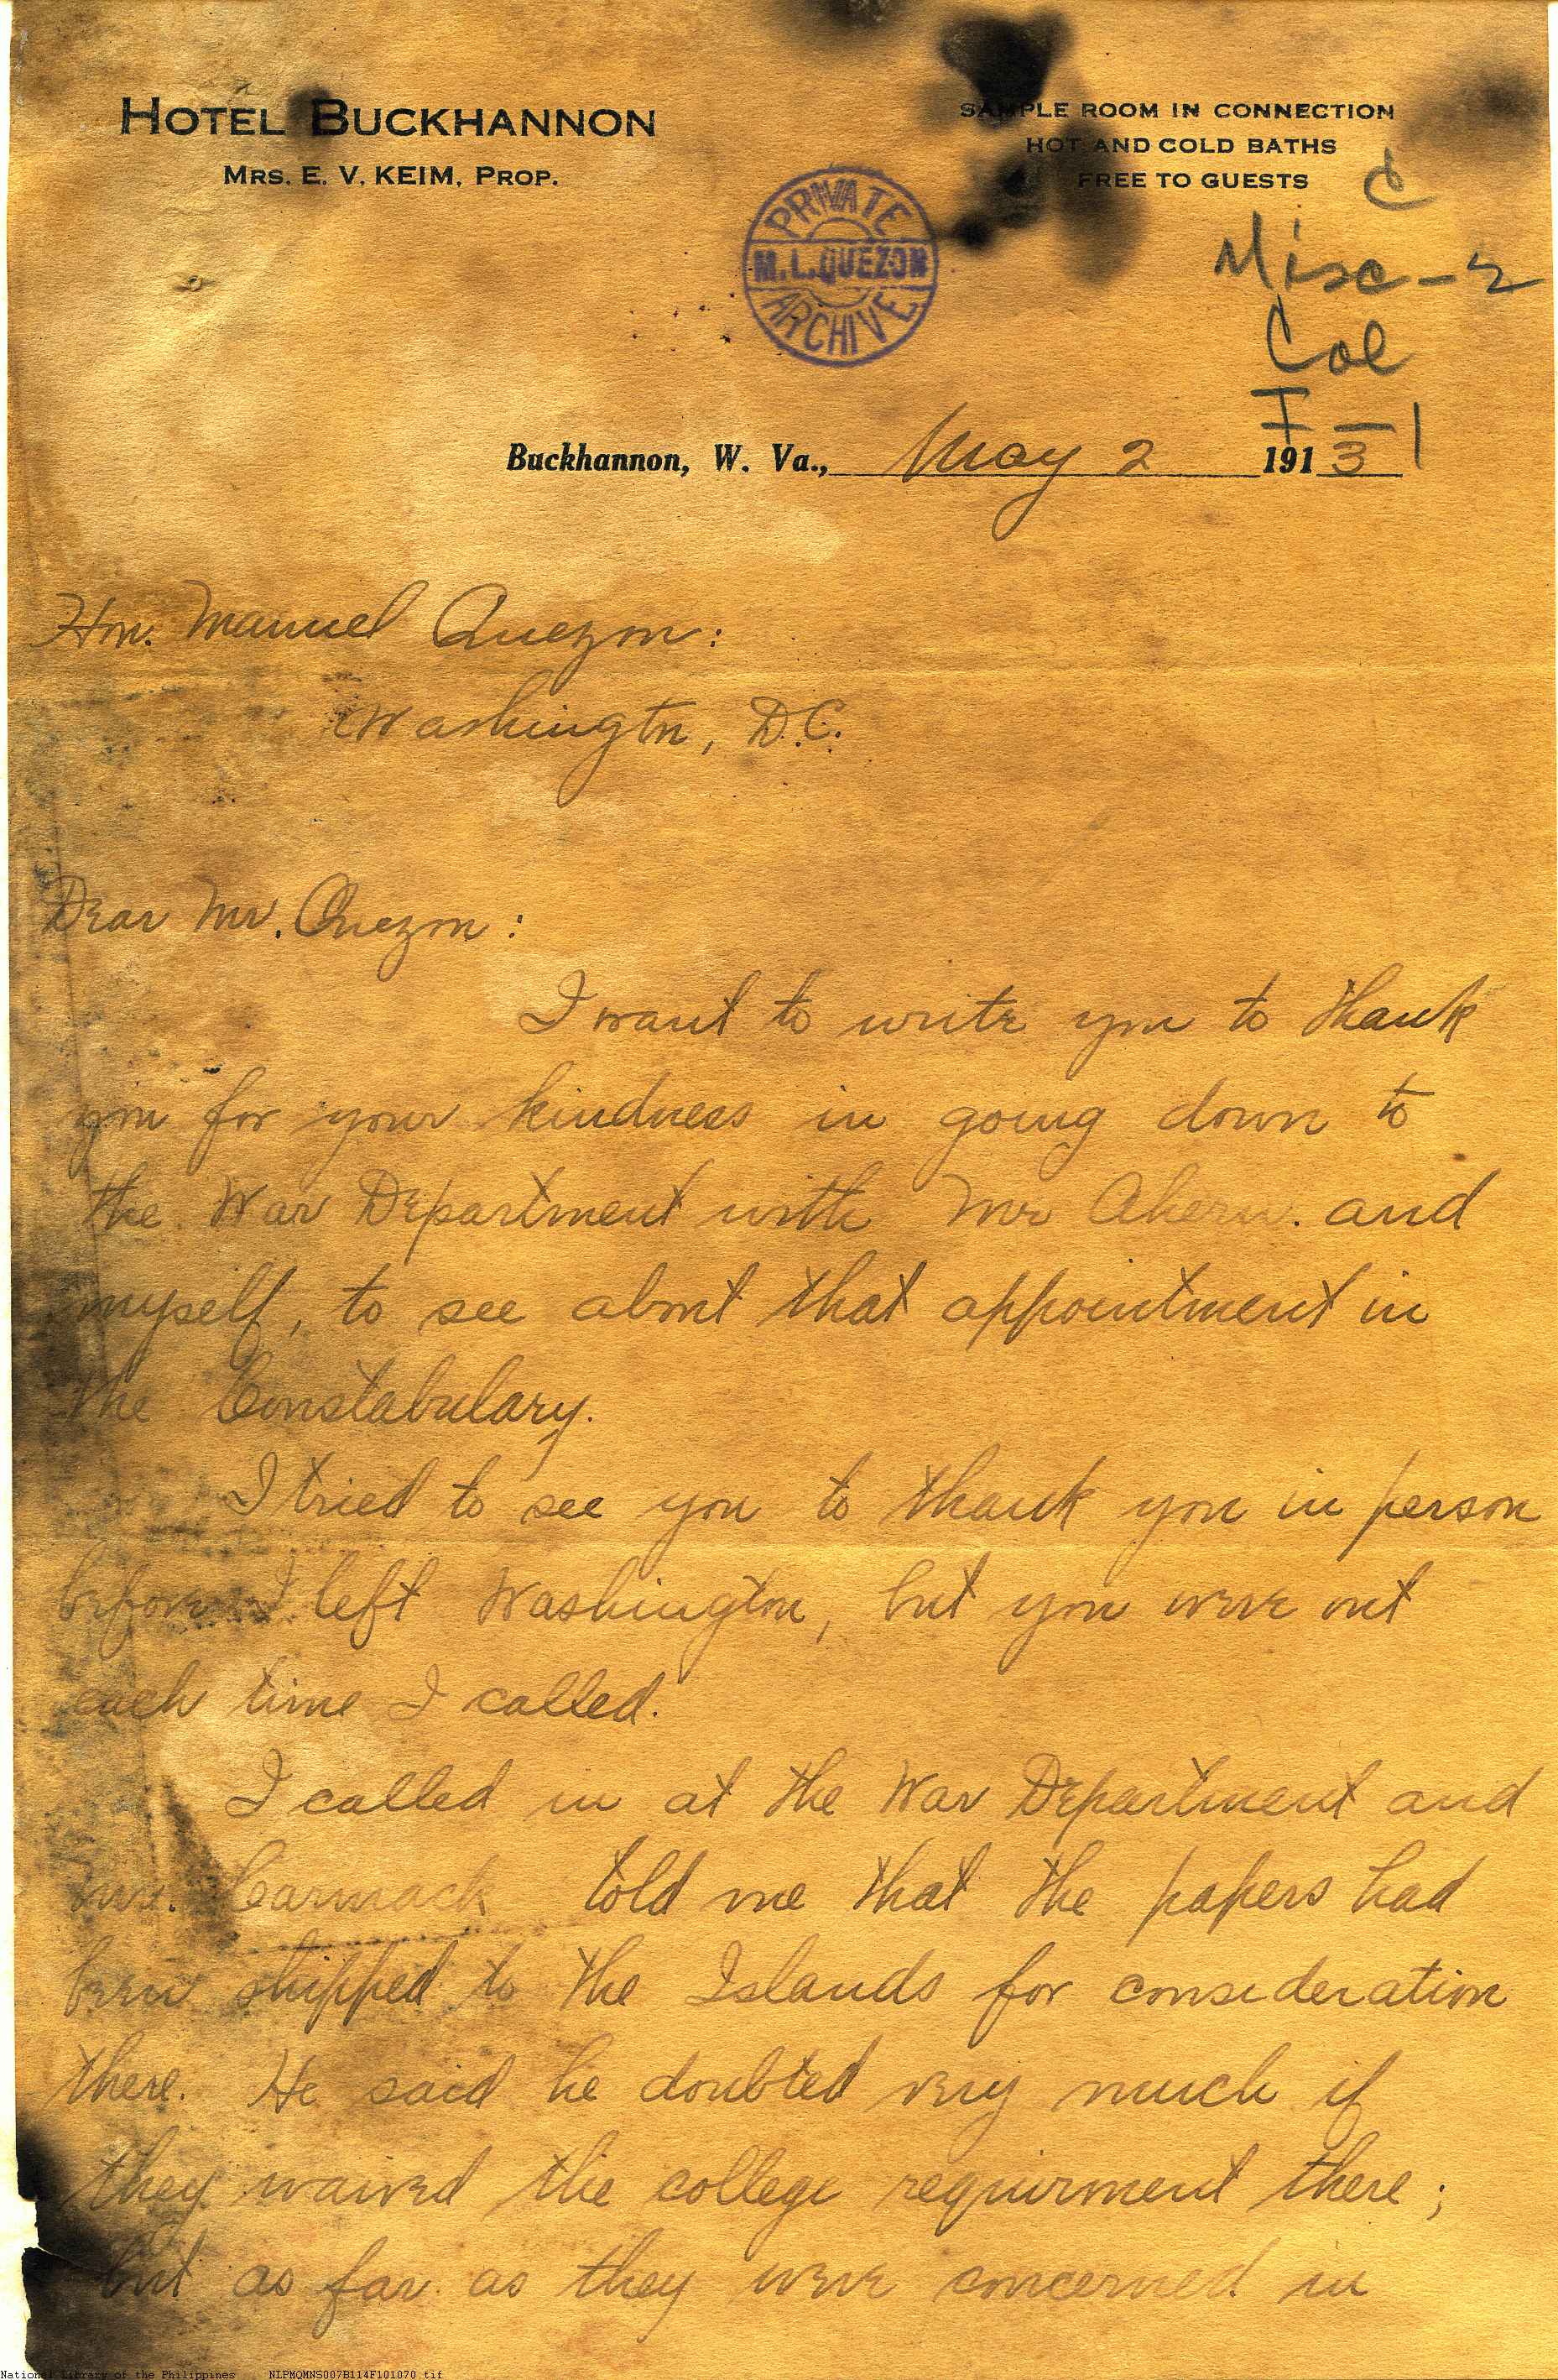 HOTEL BUCKHANNON
MRS. E. V. KEIM, PROP.
SAMPLE ROOM IN CONNECTION
HOT AND COLD BATHS
FREE TO GUESTS
C
Misc-2
Col
I-1
PRIVATE
M.L.QUEZON
ARCHIVE
Buckhannon, W. Va., May 2 1913
Hon. Manuel Quezon:
Washington, D.C.
Dear Mr. Quezon:
I want to write you to thank
you for your kindness in going down to
the War Department with Mr Ahern. and
myself, to see about that appointment in
the Constabulary.
I tried to see you to thank you in person
before I left Washington, but you were out
each time I called.
I called in at the War Department and
Mr. Carmack told me that the papers had
been shipped to the Islands for consideration
there. He said he doubted very much if
they waived the college requirment there;
but as far as they were concerned in
National Library of the Philippines NLPMQMNS007B114F101070.tif